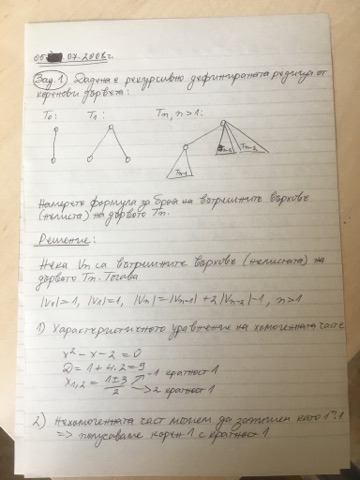 07.2008г.
Зад.1) Дадена е рекурсивно дефинираната редица от
коренови дървета:
T₀: T₁: Tₙ, n>1:
Tₙ₋₁ Tₙ₋₂
Намерете формула за броя на вътрешните върхове
(нелиста) на дървото Tₙ.
Решение:
Нека Vₙ са вътрешните върхове (нелистата) на
дървото Tₙ. Тогава
|V₀|=1, |V₁|=1, |Vₙ|=|Vₙ₋₁|+2|Vₙ₋₂|-1, n>1
1) Характеристичното уравнение на хомогенната част е
x²-x-2=0
D=1+4.2=9
x₁,₂=(1±3)/2 -1 кратност 1
2 кратност 1
2) Нехомогенната част можем да запишем като 1ⁿ.1
=> получаваме корен 1 с кратност 1